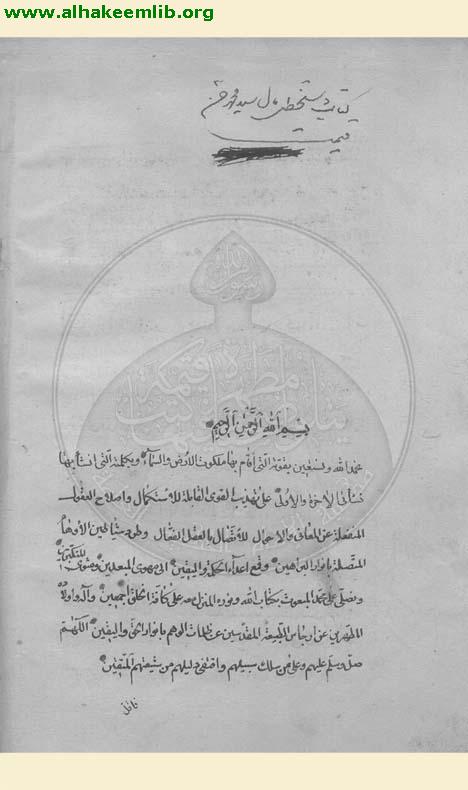 www.alhakeemlib.org
كتاب شخطى مال سيد محمد
قيمت
بسم الله الرحمن الرحيم
نحمد الله ونستعين بقوته التى اقام بها ملكوت الارض والسماء وبكلمته التى انشأ بها
نشأتى الاخرة والاولى على تهذيب القوى القابلة للاستكمال واصلاح العقول
المنفعلة عن المعانى والاحوال للاتصال بالعقل الفعال وطرد شياطين الاوهام
المضلة بانوار البراهين وقمع اعداء الحكمة واليقين الى مهوى المبعدين ومثوى المتكبرين
ونصلى على محمد المبعوث بكتاب الله ونوره المنزل معه على كافة الخلق اجمعين وآله واولاده
المطهرين عن ارجاس الطبيعة المقدسين عن ظلمات الوهم بانوار الحق واليقين اللهم
صل وسلم عليهم وعلى من سلك سبيلهم واقتفى دليلهم من شيعتهم المتقين